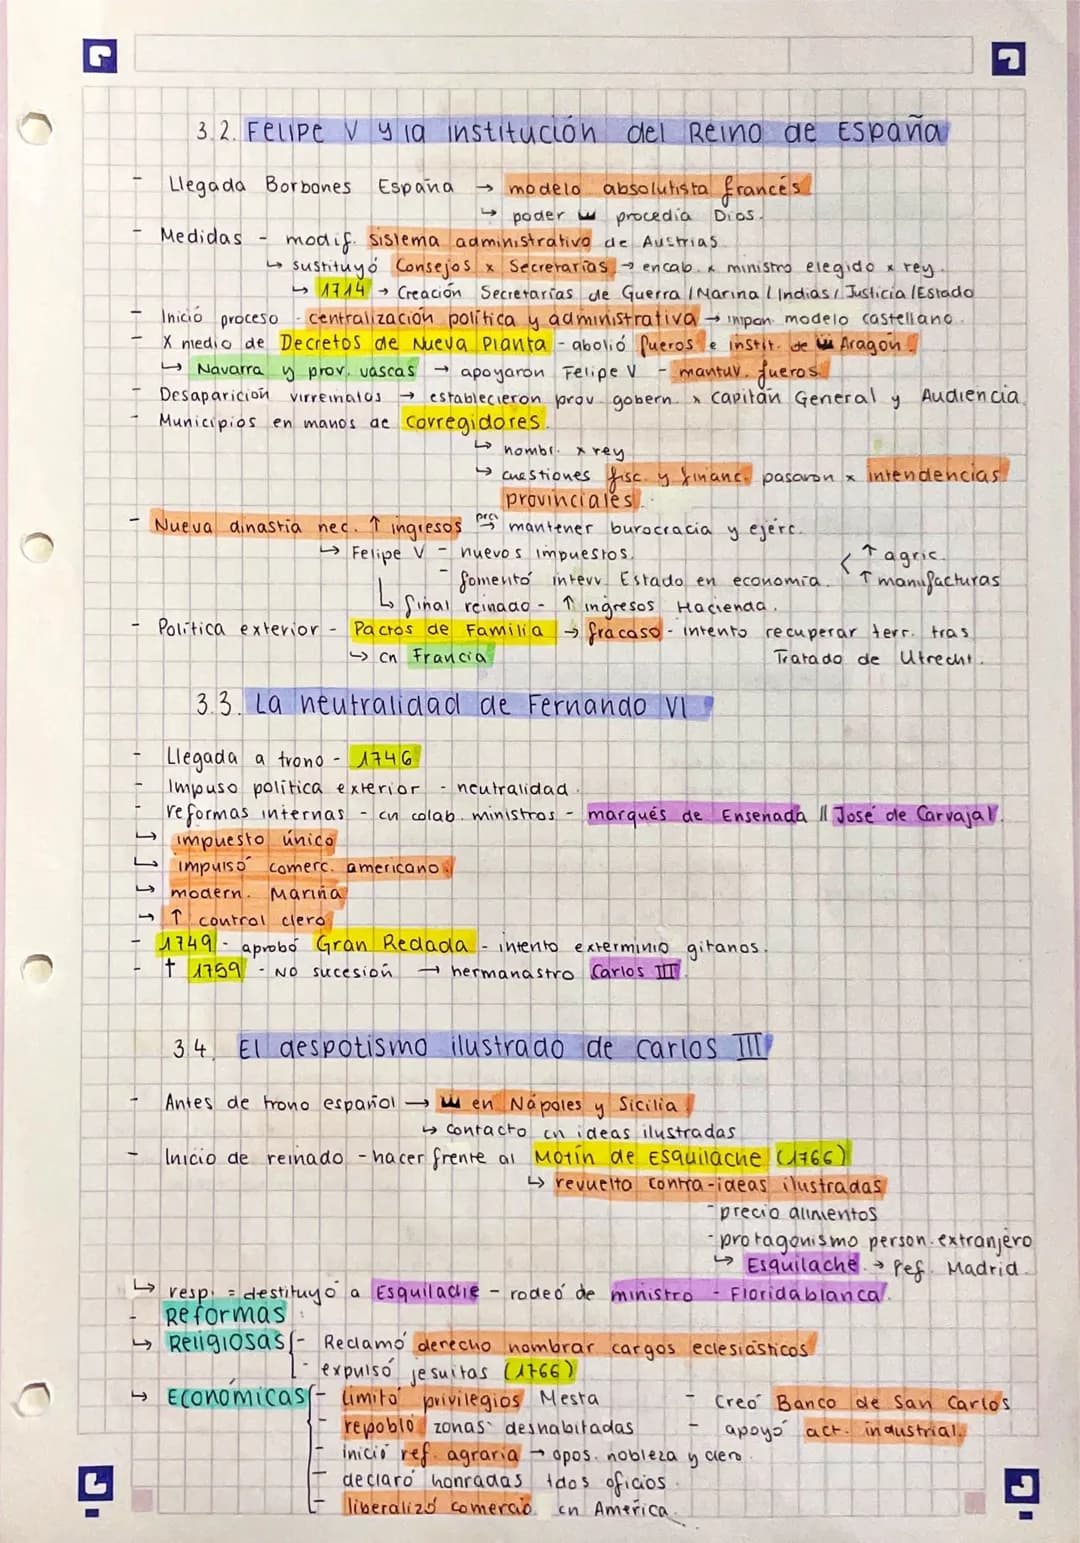 3.2. Felipe V y la institución del Reino de España
- Llegada Borbones España → modelo absolutista francés
↳ poder 👑 procedia Dios.
- Medidas - modif. sistema administrativo de Austrias
↳ sustituyó Consejos x Secretarías → encab. x ministro elegido x rey.
↳ 1714 → Creación Secretarías de Guerra / Marina / Indias / Justicia / Estado
- Inició proceso - centralización política y administrativa → impon. modelo castellano.
- X medio de Decretos de Nueva Planta - abolió fueros e instit. de 👑 Aragón.
↳ Navarra y prov. vascas → apoyaron Felipe V - mantuv. fueros.
- Desaparición virreinatos → establecieron prov. gobern. x Capitán General y Audiencia.
- Municipios en manos de Corregidores.
↳ nombr. x rey
↳ cuestiones fisc. y financ. pasaron x intendencias
provinciales.
- Nueva dinastía nec. ↑ ingresos → mantener burocracia y ejérc.
↳ Felipe V - nuevos impuestos.
- fomentó interv. Estado en economía. < ↑ agric.
↑ manufacturas
↳ final reinado - ↑ ingresos Hacienda.
- Política exterior - Pactos de Familia → fracaso - intento recuperar terr. tras
↳ cn Francia Tratado de Utrecht.
3.3. La neutralidad de Fernando VI
- Llegada a trono - 1746
- Impuso política exterior - neutralidad.
- reformas internas - cn colab. ministros - marqués de Ensenada || José de Carvajal.
↳ impuesto único
↳ impulsó comerc. americano.
↳ modern. Marina
→ ↑ control clero
- 1749 - aprobó Gran Redada - intento exterminio gitanos.
- † 1759 - NO sucesión → hermanastro Carlos III.
3.4. El despotismo ilustrado de Carlos III
- Antes de trono español → 👑 en Nápoles y Sicilia
↳ contacto cn ideas ilustradas
- Inicio de reinado - hacer frente al Motín de Esquilache (1766)
↳ revuelto contra-ideas ilustradas
- precio alimentos
- protagonismo person. extranjero
↳ Esquilache. → Pef. Madrid.
↳ resp. = destituyó a Esquilache - rodeó de ministro - Floridablanca.
- Reformas:
↳ Religiosas - Reclamó derecho nombrar cargos eclesiásticos
- expulsó jesuitas (1766)
↳ Económicas - limitó privilegios Mesta - Creó Banco de San Carlos
- repobló zonas deshabitadas - apoyó act. industrial.
- inició ref. agraria → opos. nobleza y clero.
- declaró honradas tdos oficios.
- liberalizó comercio cn América.